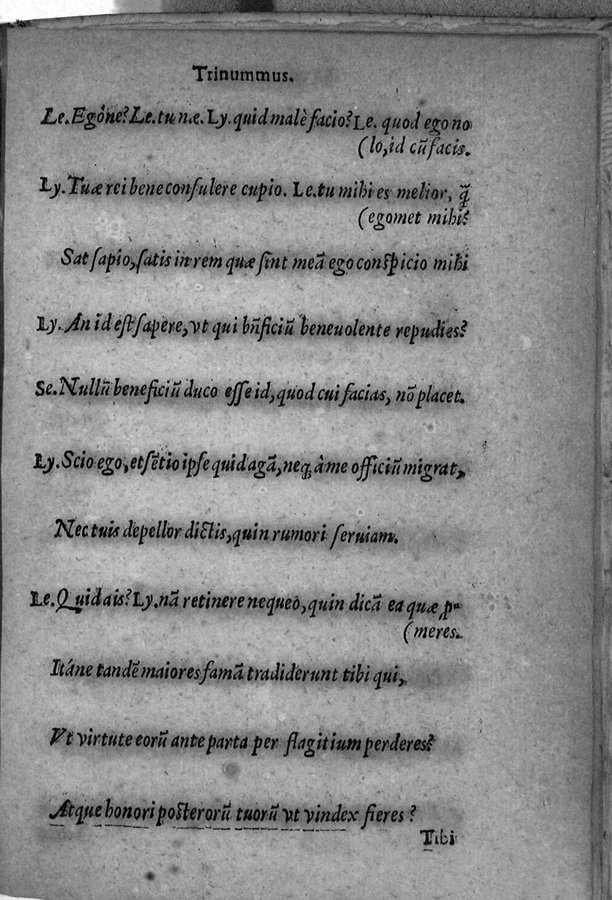 Trinummus.
Le. Egóne? Le. tu næ. Ly. quid malè facio? Le. quod ego no
(lo, id cũ facis.
Ly. Tuæ rei bene consulere cupio. Le. tu mihi es melior, q̃
(egomet mihi?
Sat sapio, satis in rem quæ sint meã ego conspicio mihi
Ly. An id est sapere, vt qui bñficiũ beneuolente repudies?
Se. Nullũ beneficiũ duco esse id, quod cui facias, nõ placet.
Ly. Scio ego, et sẽtio ipse quid agã, neq; à me officiũ migrat,
Nec tuis depellor dictis, quin rumori seruiam.
Le. Quid ais? Ly. nã retinere nequeò, quin dicã ea quæ ꝓ-
(meres.
Itáne tandẽ maiores famã tradiderunt tibi qui,
Vt virtute eorũ ante parta per flagitium perderes?
Atque honori posterorũ tuorũ vt vindex fieres?
Tibi